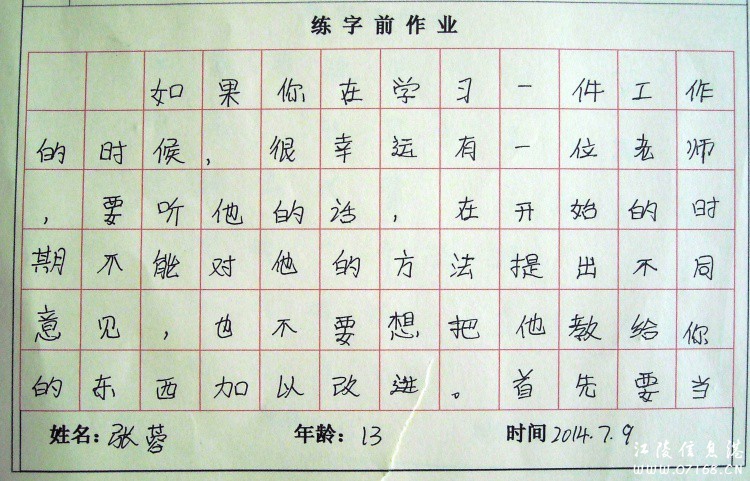 练字前作业
如果你在学习一件工作
的时候，很幸运有一位老师
，要听他的话，在开始的时
期不能对他的方法提出不同
意见，也不要想把他教给你
的东西加以改进。首先要当
姓名：张蓉 年龄：13 时间 2014.7.9
江陵信息港
WWW.07168.CN